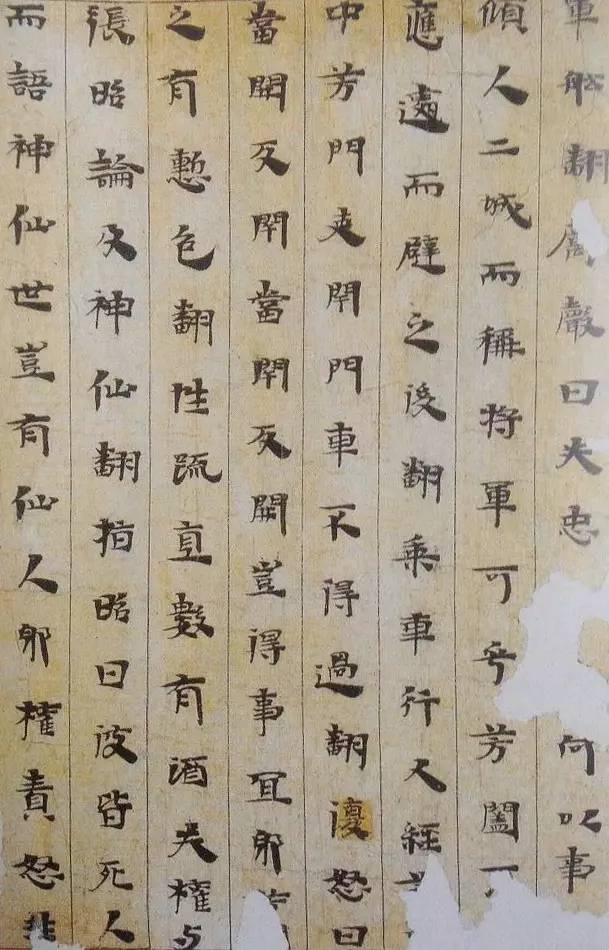 軍舩翻厲聲曰失忠何以事
傾人二城而稱將軍可乎芳闔
應遽而避之後翻乘車行又經
中芳門吏閉門車不得過翻復怒曰
當開反閉當閉反開豈得事宜邪
之有慙色翻性疏直數有酒失權與
張昭論及神仙翻指昭曰彼皆死人
而語神仙世豈有仙人邪權責怒非